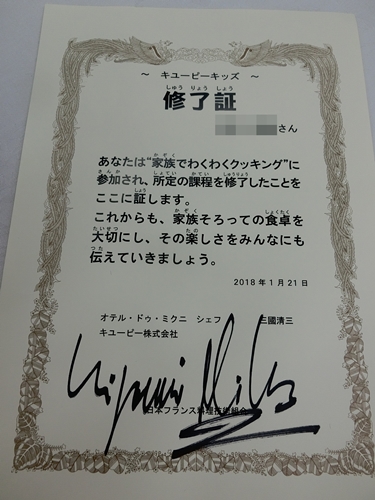 ～ キユーピーキッズ ～
修了証
さん
あなたは“家族でわくわくクッキング”に
参加され、所定の課程を修了したことを
ここに証します。
これからも、家族そろっての食卓を
大切にし、その楽しさをみんなにも
伝えていきましょう。
2018年1月21日
オテル・ドゥ・ミクニ シェフ 三國清三
キユーピー株式会社
日本フランス料理技術組合